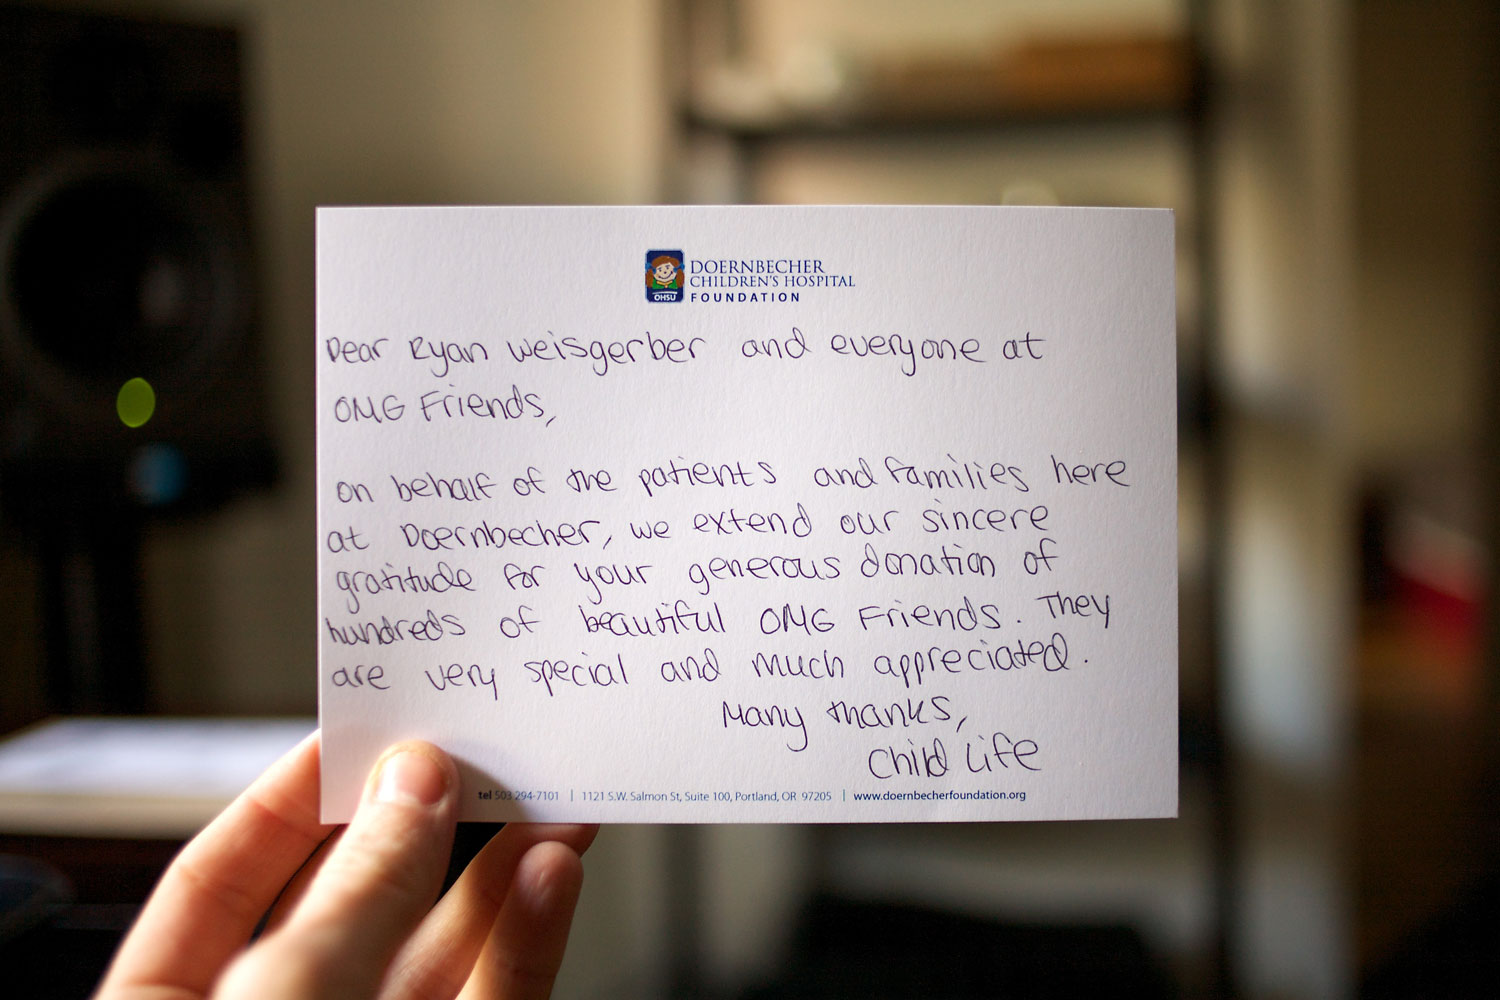 OHSU
DOERNBECHER
CHILDREN'S HOSPITAL
FOUNDATION
Dear Ryan Weisgerber and everyone at
OMG Friends,
on behalf of the patients and families here
at Doernbecher, we extend our sincere
gratitude for your generous donation of
hundreds of beautiful OMG Friends. They
are very special and much appreciated.
Many thanks,
Child Life
tel 503 294-7101 | 1121 S.W. Salmon St, Suite 100, Portland, OR 97205 | www.doernbecherfoundation.org